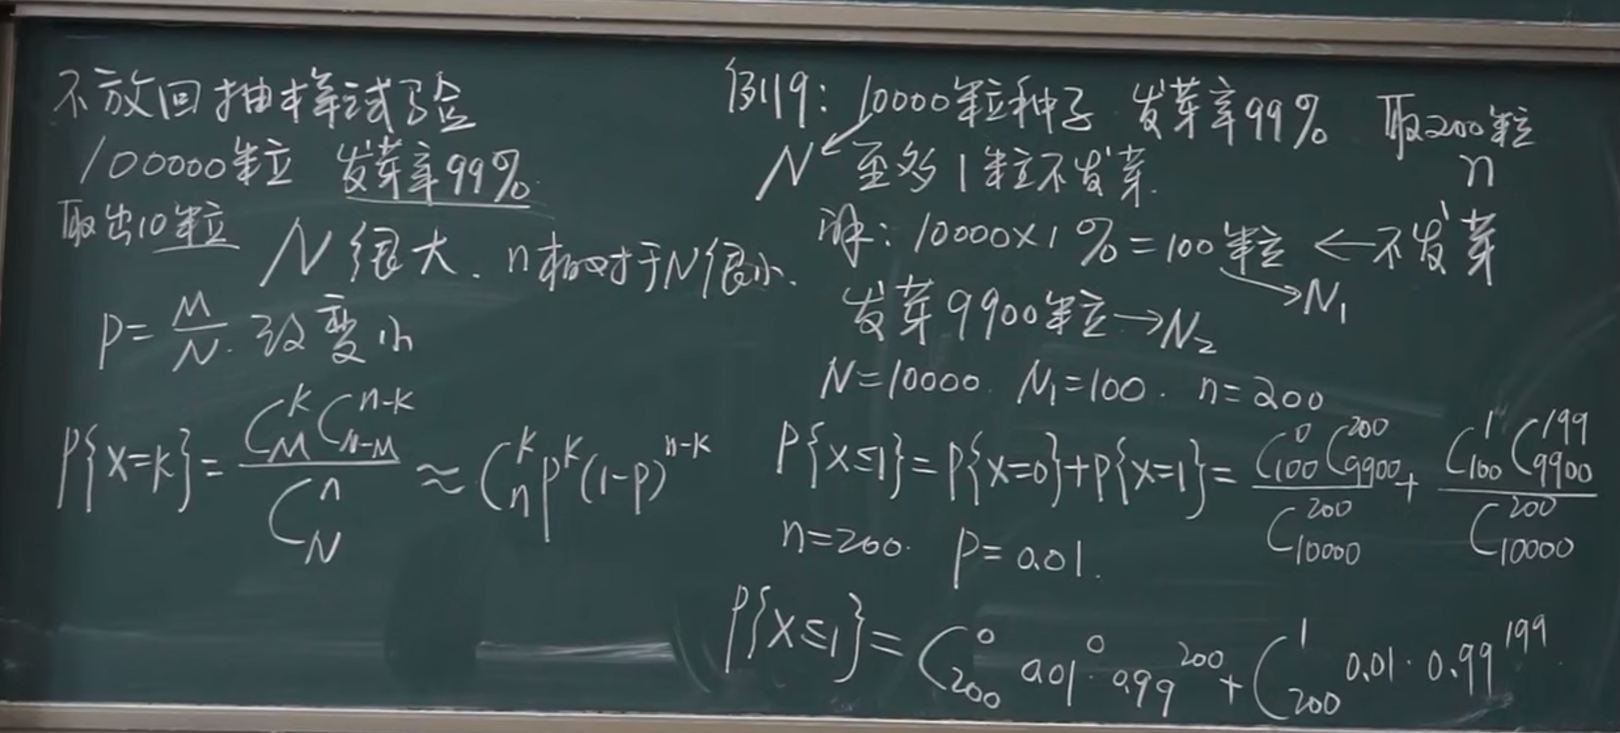 不放回抽样试验
100000粒 发芽率99%.
取出10粒 N很大. n相对于N很小.
P=M/N. 改变小
P{X=k}=C_M^k C_{N-M}^{n-k}/C_N^n ≈ C_n^k p^k (1-p)^{n-k}
例19: 10000粒种子 发芽率99% 取200粒
N 至多1粒不发芽. n
解: 10000×1%=100粒 ← 不发芽
→N₁
发芽9900粒→N₂
N=10000. N₁=100. n=200
P{X≤1}=P{X=0}+P{X=1}=C_{100}^0 C_{9900}^{200}/C_{10000}^{200}+C_{100}^1 C_{9900}^{199}/C_{10000}^{200}
n=200. P=0.01.
P{X≤1}=C_{200}^0 0.01^0·0.99^{200}+C_{200}^1 0.01·0.99^{199}